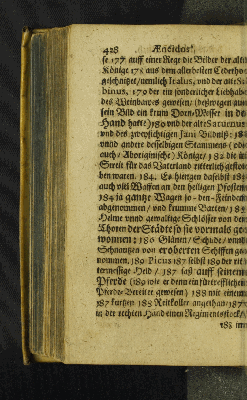 428 Æneidos.
se 177 auff einer Rege die Bilder der alten
Könige 178 aus dem allerbesten Cederholtz
geschnitzet/nemlich Italus, und der alte Sa-
binus, 179 der ein sonderlicher Liebhaber
des Weinbaues gewesen/
sein Bild ein krum Dorn-Messer in der
Hand hatte) 180 und der alte Saturnus
und des zweysichtigen Jani Bildniß: 181
unnd andere desselbigen Stammens (oder
auch/ Aboriginische) Könige/ 182 die im
Streit für das Vaterland ritterlich gestor-
ben waren. 184 Es hiengen daselbst 183
auch viel Waffen an den heiligen Pfosten
184 ja gantze Wagen so den Feinden
abgenommen/ und krumme Barten/ 185
Helme unnd gewaltige Schlösser von den
Thoren der Städte so sie vormals ge-
wonnen: 186 Glänen/ Schilde/ unnd
Schnautzen von eroberten Schiffen ge-
nommen. 189 Picus 187 selbst 189 der rit-
termessige Held/ 187 saß auff seinem
Pferde (189 wie er denn ein fürtrefflicher
Pferde-Bereiter gewesen) 188 mit einem
187 kurtzen 188 Reitkoller angethan: 187
in der rechten Hand einen Regimentsstock/